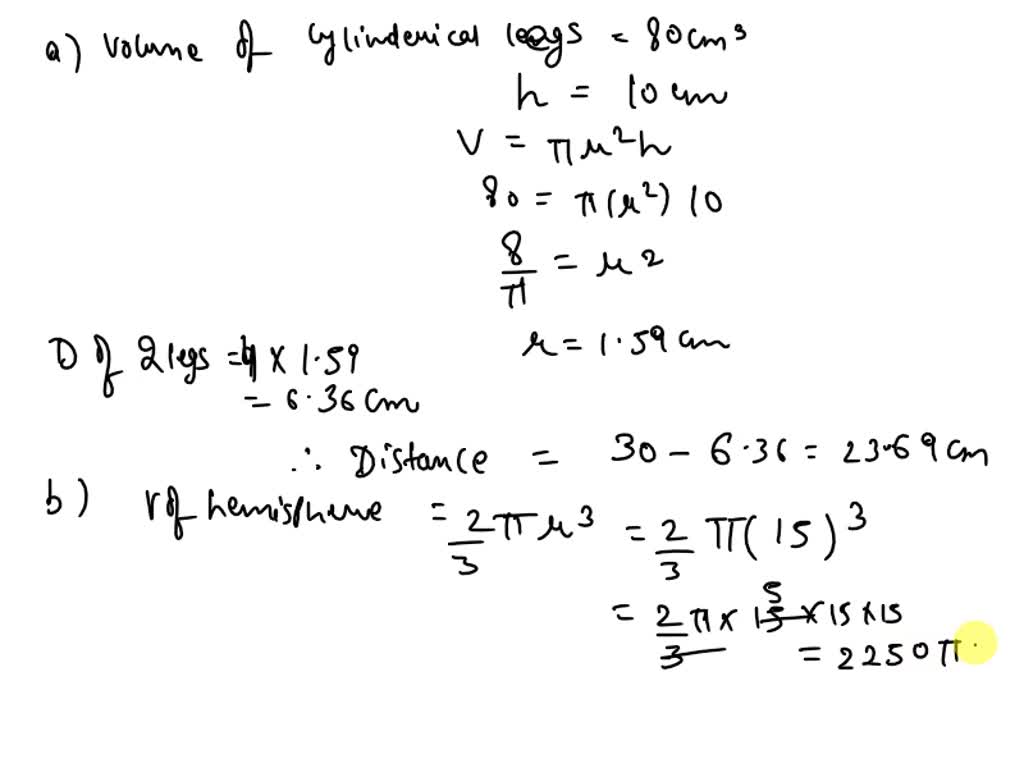 a) Volume of cylinderical legs = 80 cm³
h = 10 cm
V = πr²h
80 = π(r²) 10
8/π = r²
r = 1.59 cm
D of 2 legs = 4 × 1.59
= 6.36 cm
∴ Distance = 30 - 6.36 = 23.69 cm
b) V of hemisphere = 2/3 πr³ = 2/3 π(15)³
= 2/3 π × 15 5 × 15 × 15
= 2250π